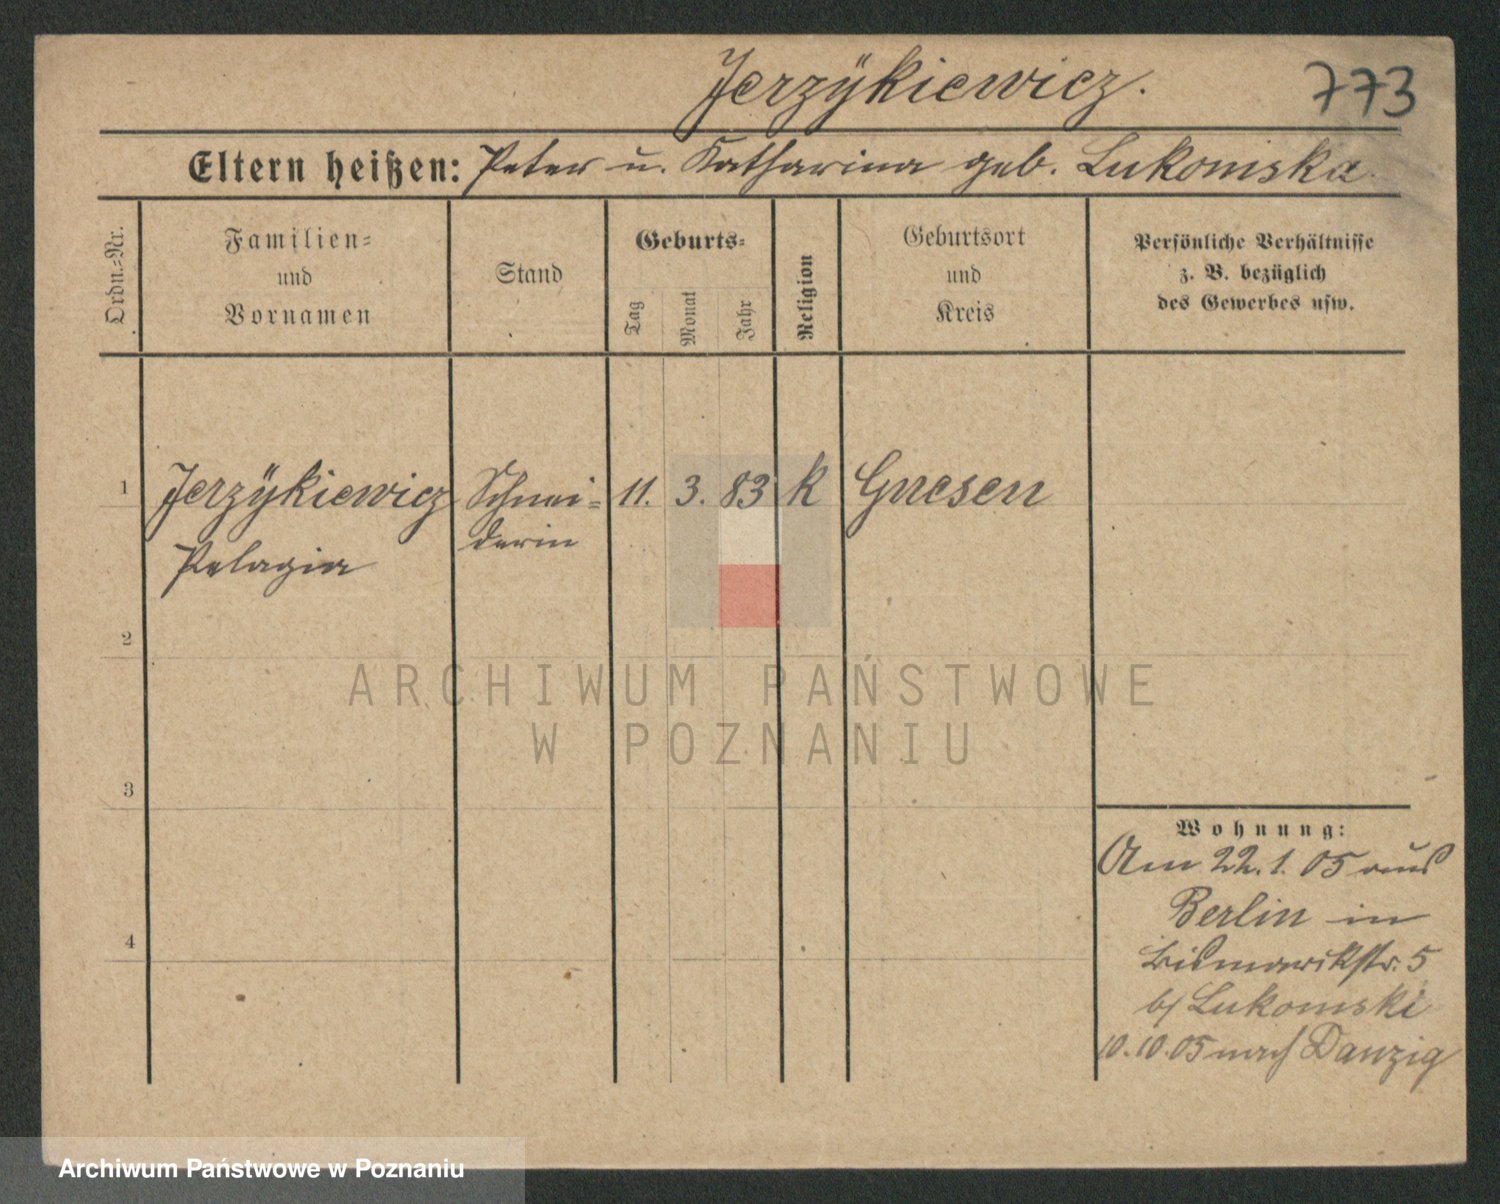 Jerzÿkiewicz.
773
Eltern heißen: Peter u. Katharina geb. Lukomska.
Ordn.=Nr.
Familien=
und
Vornamen
Stand
Geburts=
Tag
Monat
Jahr
Religion
Geburtsort
und
Kreis
Persönliche Verhältnisse
z. B. bezüglich
des Gewerbes usw.
1 Jerzÿkiewicz Schnei= 11. 3. 83 K Gnesen
Pelagia derin
2
ARCHIWUM PAŃSTWOWE
W POZNANIU
3
Wohnung:
Am 22.1.05 aus
Berlin in
4
Bismarckstr. 5
b/ Lukomski
10.10.05 nach Danzig
Archiwum Państwowe w Poznaniu